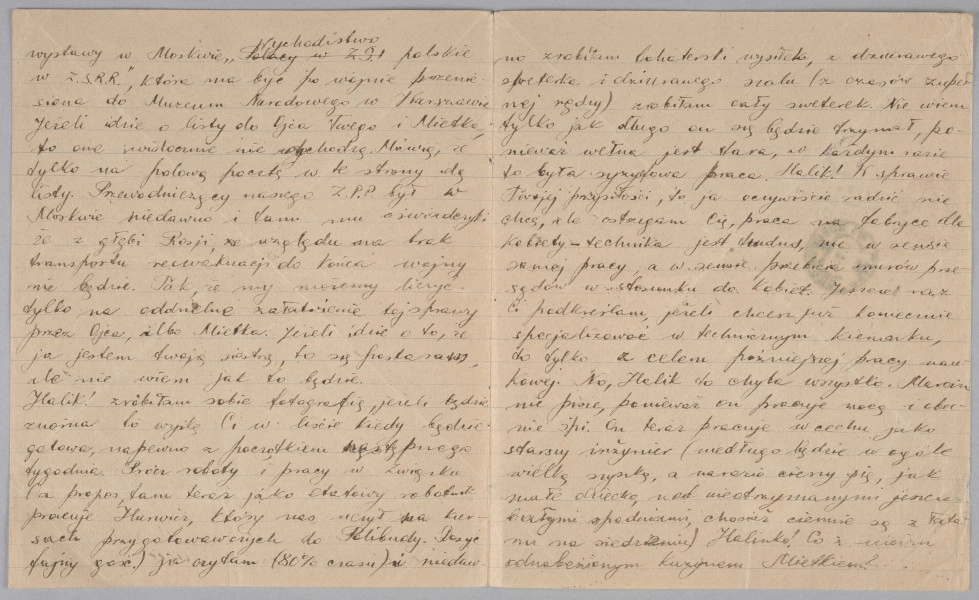 Wychodźstwo
wystawy w Moskwie,, Polacy w Z.S. polskie
w Z.S.R.R.", która ma być po wojnie przenie-
siona do Muzeum Narodowego w Warszawie
Jeżeli idzie o listy do Ojca Twego i Mietka,
to one widocznie nie dochodzą. Mówią, że
tylko na polową pocztę w te strony idą
listy. Przewodniczący naszego Z.P.P był w
Moskwie niedawno i tam mu oświadczyli
że z głębi Rosji, ze względu na brak
transportu reewakuacji do końca wojny
nie będzie. Tak, że my możemy liczyć
tylko na oddzielne załatwienie tej sprawy
przez Ojca, albo Mietka. Jeżeli idzie o to, że
ja jestem twoją siostrą, to się postaram,
ale nie wiem jak to będzie.
Halik! zrobiłam sobie fotografię, jeżeli będzie
znośna to wyślę Ci w liście kiedy będzie
gotowa, napewno z początkiem następnego
tygodnia. Prócz roboty i pracy w Związku
(a propos, tam teraz jako etatowy robotnik
pracuje Hurwicz, który nas uczył na kur-
sach przygotowawczych do Polibudy. Dosyć
fajny gość.) ja czytam (80% czasu) i niedaw-
no zrobiłam bohaterski wysiłek, z dziurawego
sweterka i dziurawego szalu (z czasów zupeł-
nej nędzy) zrobiłam cały sweterek. Nie wiem
tylko jak długo on się będzie trzymał, po-
nieważ wełna jest stara, w każdym razie
to była syzyfowa praca. Halik! W sprawie
Twojej przyszłości, to ja oczywiście radzić nie
chcę, ale ostrzegam Cię, praca na fabryce dla
kobiety-technika jest trudna, nie w sensie
samej pracy, a w sensie przebicia murów prze-
sądów w stosunku do kobiet. Jeszcze raz
Ci podkreślam, jeżeli chcesz już koniecznie
specjalizować w technicznym kierunku,
to tylko z celem późniejszej pracy nau-
kowej. No, Halik to chyba wszystko. Marcin
nie pisze, ponieważ on pracuje nocą i obec-
nie śpi. On teraz pracuje w cechu jako
starszy inżynier (niedługo będzie w ogóle
wielką szyszką, a narazie cieszy się, jak
małe dziecko nad nieotrzymanymi jeszcze
białymi spodniami, chociaż ciemne są z łata-
mi na siedzeniu) Halinko! Co z twoim
odnalezionym kuzynem Mietkiem?